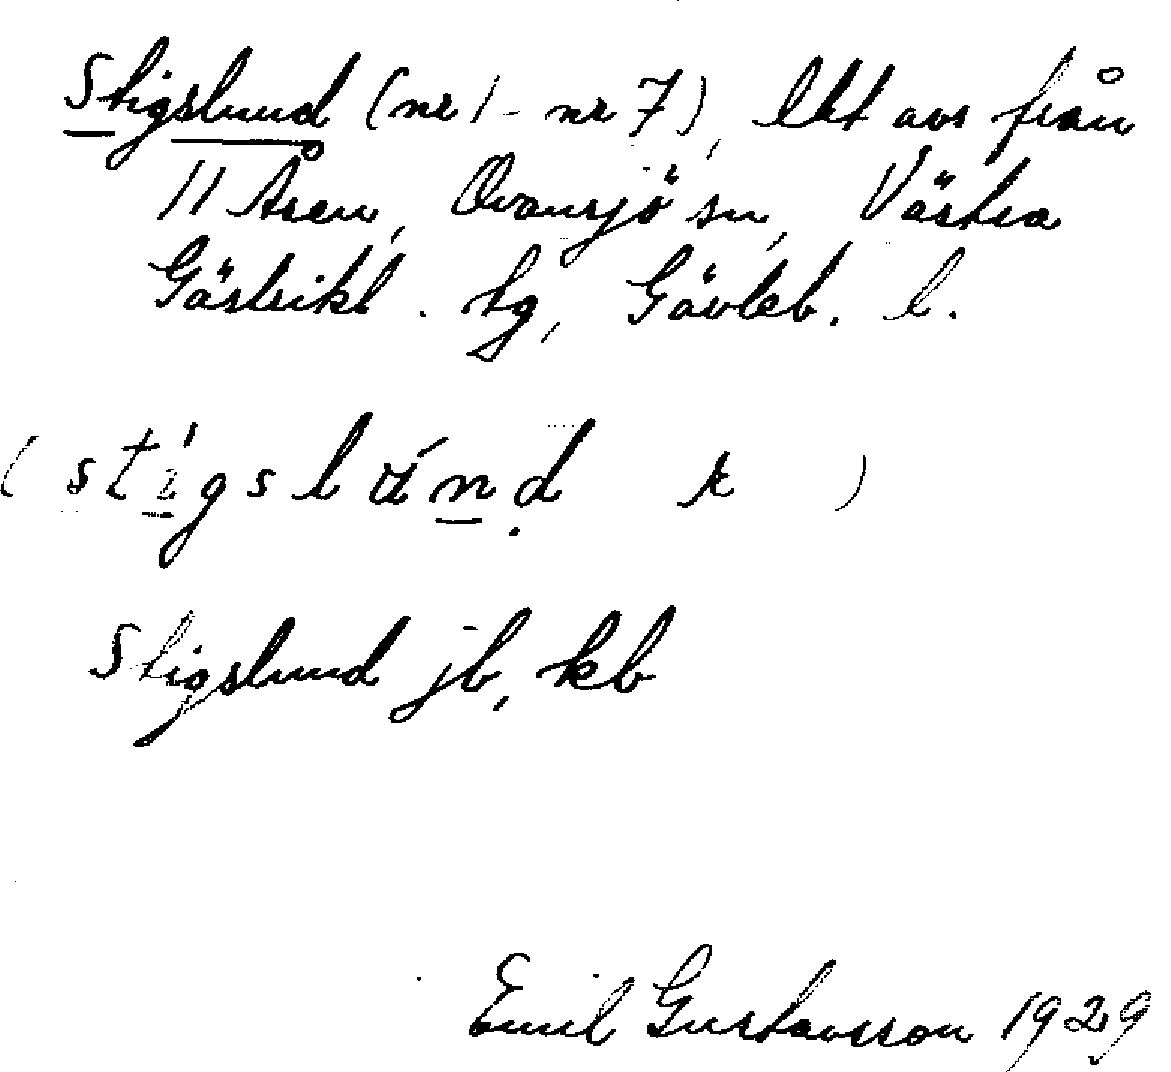 Stigslund (nr 1 - nr 7), lht avs från
11 Åren, Ovansjö sn, Västra
Gästrikl. tg, Gävleb. l.
Stigslund jb, kb
Emil Gustavsson 1929